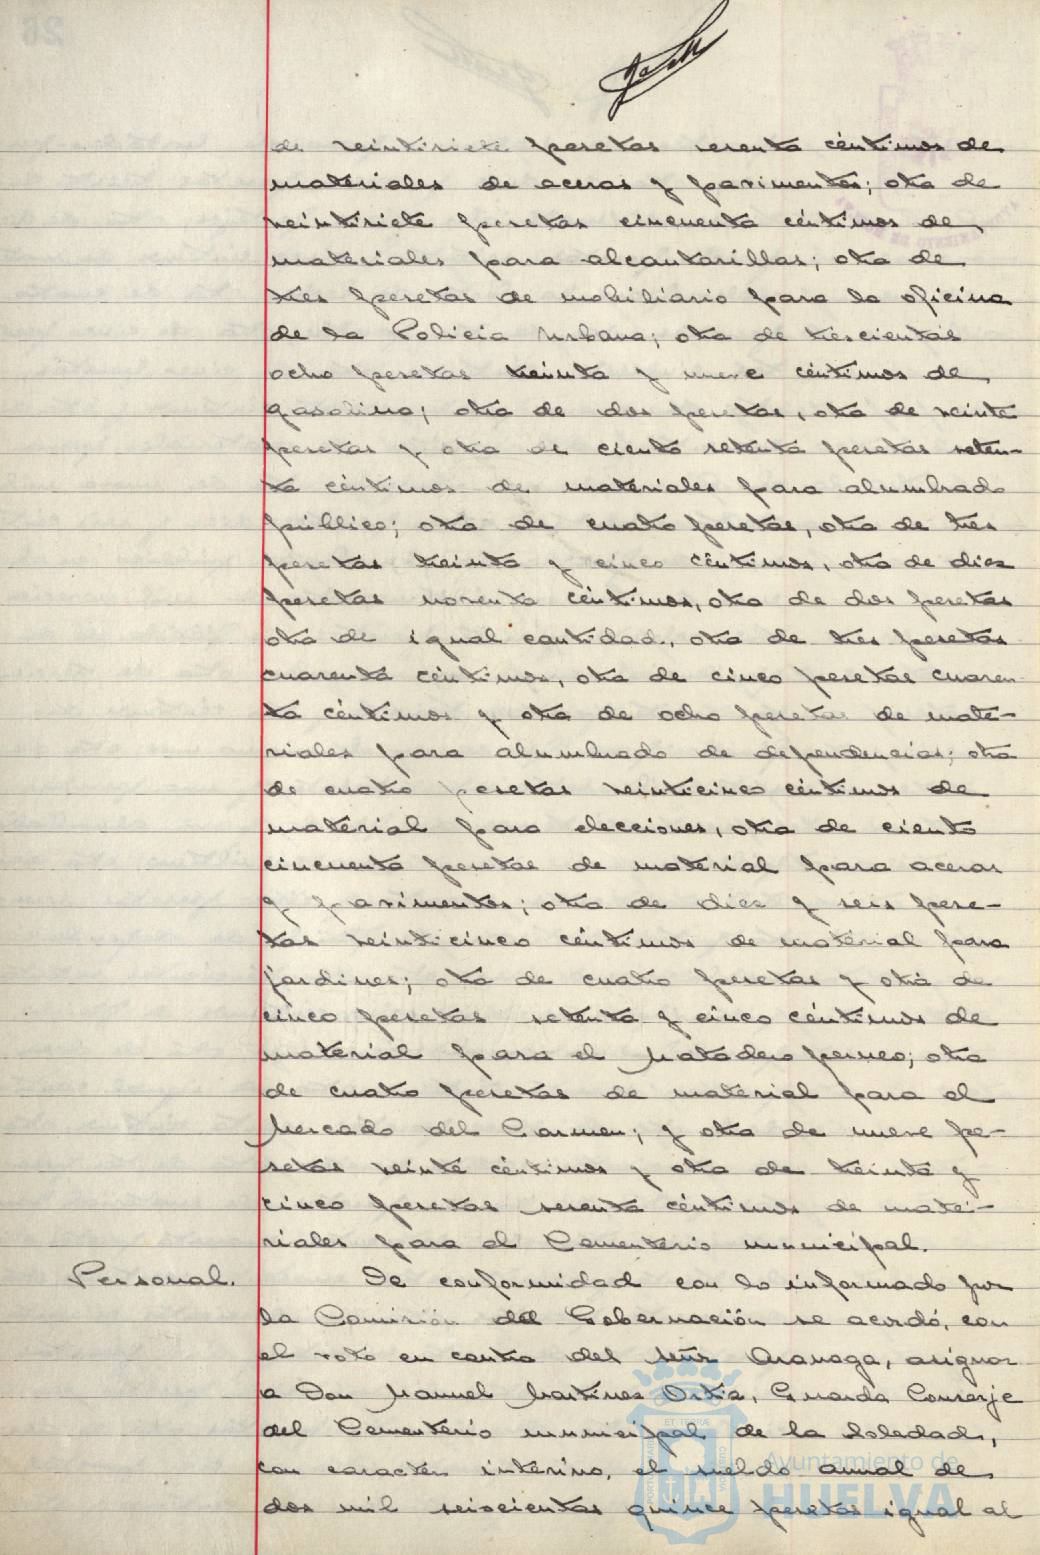 de veintisiete pesetas sesenta céntimos de
materiales de aceras y pavimentos; otra de
veintisiete pesetas cincuenta céntimos de
materiales para alcantarillas; otra de
tres pesetas de mobiliario para la oficina
de la Policía Urbana; otra de trescientas
ocho pesetas treinta y nueve céntimos de
gasolina; otra de dos pesetas, otra de veinte
pesetas y otra de ciento setenta pesetas seten-
ta céntimos de materiales para alumbrado
público; otra de cuatro pesetas, otra de tres
pesetas treinta y cinco céntimos, otra de diez
pesetas noventa céntimos, otra de dos pesetas
otra de igual cantidad, otra de tres pesetas
cuarenta céntimos, otra de cinco pesetas cuaren-
ta céntimos y otra de ocho pesetas de mate-
riales para alumbrado de dependencias; otra
de cuatro pesetas veinticinco céntimos de
material para elecciones, otra de ciento
cincuenta pesetas de material para aceras
y pavimentos; otra de diez y seis pese-
tas veinticinco céntimos de material para
jardines; otra de cuatro pesetas y otra de
cinco pesetas setenta y cinco céntimos de
material para el Matadero perneo; otra
de cuatro pesetas de material para el
Mercado del Carmen; y otra de nueve pe-
setas veinte céntimos y otra de treinta y
cinco pesetas sesenta céntimos de mate-
riales para el Cementerio municipal.
Personal. De conformidad con lo informado por
la Comisión de Gobernación se acordó, con
el voto en contra del señor Aranaga, asignar
a Don Manuel Martínez Ortiz, Guarda Conserje
del Cementerio municipal de la Soledad,
con carácter interino, el sueldo anual de
dos mil seiscientas quince pesetas igual al
Ayuntamiento de
HUELVA